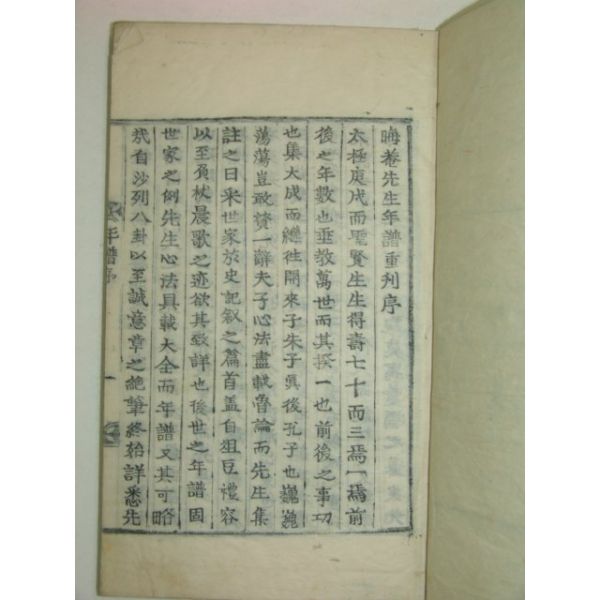 晦菴先生年譜重刋序
太極庚戌而聖賢生生得壽七十而三焉一焉前
後之年數也垂敎萬世而其揆一也前後之事功
也集大成而繼往開來子朱子眞後孔子也巍巍
蕩蕩豈敢賛一辭夫子心法盡載魯論而先生集
註之日采世家於史記叙之篇首盖自俎豆禮容
以至負杖晨歌之迹欲其致詳也後世之年譜固
世家之例先生心法具載大全而年譜又其可略
㢤自沙列八卦以至誠意章之絶筆終始詳悉先
年譜序
一